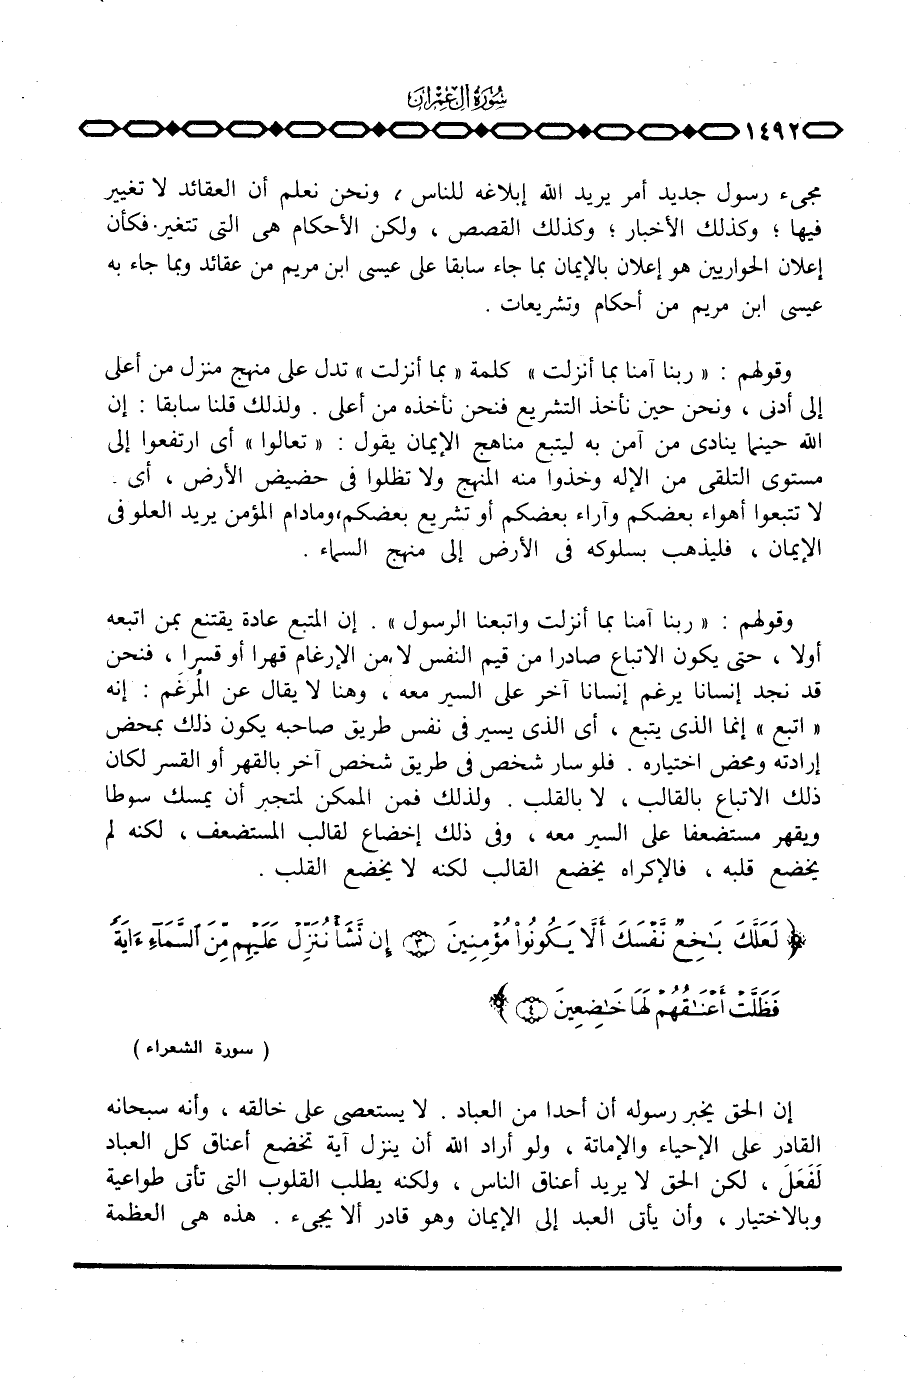 سُورَةُ آلِ عِمْرَان
١٤٩٢
مجىء رسول جديد أمر يريد الله إبلاغه للناس ، ونحن نعلم أن العقائد لا تغيير
فيها ؛ وكذلك الأخبار ؛ وكذلك القصص ، ولكن الأحكام هى التى تتغير. فكأن
إعلان الحواريين هو إعلان بالإيمان بما جاء سابقا على عيسى ابن مريم من عقائد وبما جاء به
عيسى ابن مريم من أحكام وتشريعات .
وقولهم : « ربنا آمنا بما أنزلت » كلمة « بما أنزلت » تدل على منهج منزل من أعلى
إلى أدنى ، ونحن حين نأخذ التشريع فنحن نأخذه من أعلى . ولذلك قلنا سابقا : إن
الله حينما ينادى من آمن به ليتبع مناهج الإيمان يقول : « تعالوا » أى ارتفعوا إلى
مستوى التلقى من الإله وخذوا منه المنهج ولا تظلوا فى حضيض الأرض ، أى .
لا تتبعوا أهواء بعضكم وآراء بعضكم أو تشريع بعضكم، ومادام المؤمن يريد العلو فى
الإيمان ، فليذهب بسلوكه فى الأرض إلى منهج السماء .
وقولهم : « ربنا آمنا بما أنزلت واتبعنا الرسول » . إن المتبع عادة يقتنع بمن اتبعه
أولا ، حتى يكون الاتباع صادرا من قيم النفس لا من الإرغام قهرا أو قسرا ، فنحن
قد نجد إنسانا يرغم إنسانا آخر على السير معه ، وهنا لا يقال عن المُرغَم : إنه
« اتبع » إنما الذى يتبع ، أى الذى يسير فى نفس طريق صاحبه يكون ذلك بمحض
إرادته ومحض اختياره . فلو سار شخص فى طريق شخص آخر بالقهر أو القسر لكان
ذلك الاتباع بالقالب ، لا بالقلب . ولذلك فمن الممكن لمتجبر أن يمسك سوطا
ويقهر مستضعفا على السير معه ، وفى ذلك إخضاع لقالب المستضعف ، لكنه لم
يخضع قلبه ، فالإكراه يخضع القالب لكنه لا يخضع القلب .
﴿ لَعَلَّكَ بَـٰخِعٌ نَّفْسَكَ أَلَّا يَكُونُوا۟ مُؤْمِنِينَ ٣ إِن نَّشَأْ نُنَزِّلْ عَلَيْهِم مِّنَ ٱلسَّمَآءِ ءَايَةً
فَظَلَّتْ أَعْنَـٰقُهُمْ لَهَا خَـٰضِعِينَ ٤ ﴾
( سورة الشعراء )
إن الحق يخبر رسوله أن أحدا من العباد . لا يستعصى على خالقه ، وأنه سبحانه
القادر على الإحياء والإماتة ، ولو أراد الله أن ينزل آية تخضع أعناق كل العباد
لَفَعَلَ ، لكن الحق لا يريد أعناق الناس ، ولكنه يطلب القلوب التى تأتى طواعية
وبالاختيار ، وأن يأتى العبد إلى الإيمان وهو قادر ألا يجىء . هذه هى العظمة